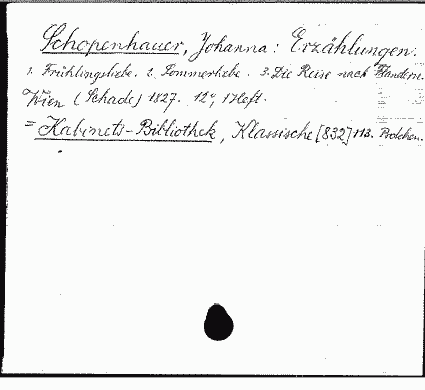 Schopenhauer, Johanna: Erzählungen.
1. Frühlingsliebe. 2. Sommerliebe. 3. Die Reise nach Flandern.
Wien (Schade) 1827. 12°, 1 Heft.
= Kabinets-Bibliothek, Klassische [832] 113. Bdchen.